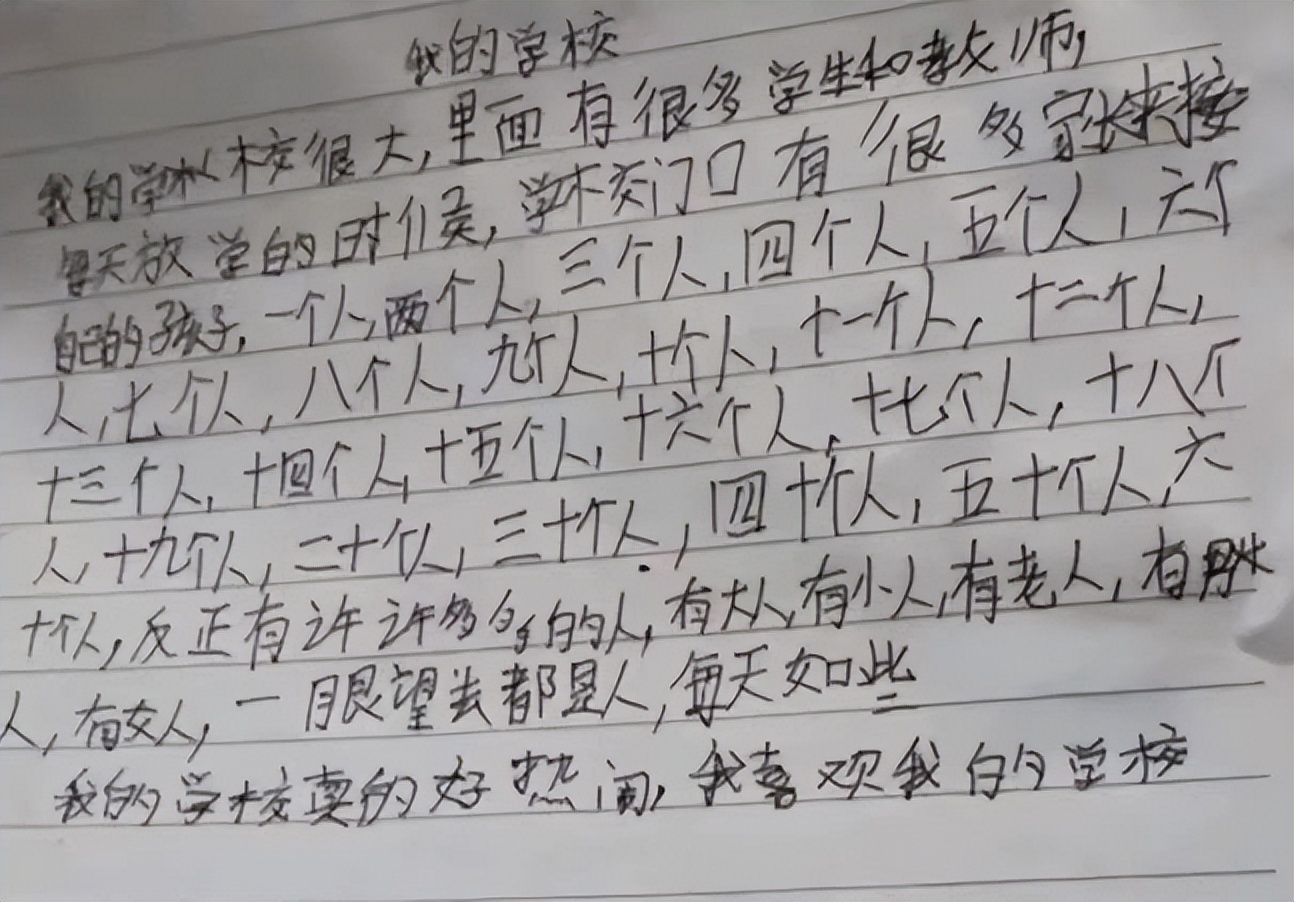 我的学校
我的学校很大,里面有很多学生和教师,
每天放学的时候,学校门口有很多家长来接
自己的孩子,一个人,两个人,三个人,四个人,五个人,六个
人,七个人,八个人,九个人,十个人,十一个人,十二个人,
十三个人,十四个人,十五个人,十六个人,十七个人,十八个
人,十九个人,二十个人,三十个人,四十个人,五十个人,六
十个人,反正有许许多多的人,有大人,有小人,有老人,有
人,有女人,一眼望去都是人,每天如此
我的学校真的好热闹,我喜欢我的学校